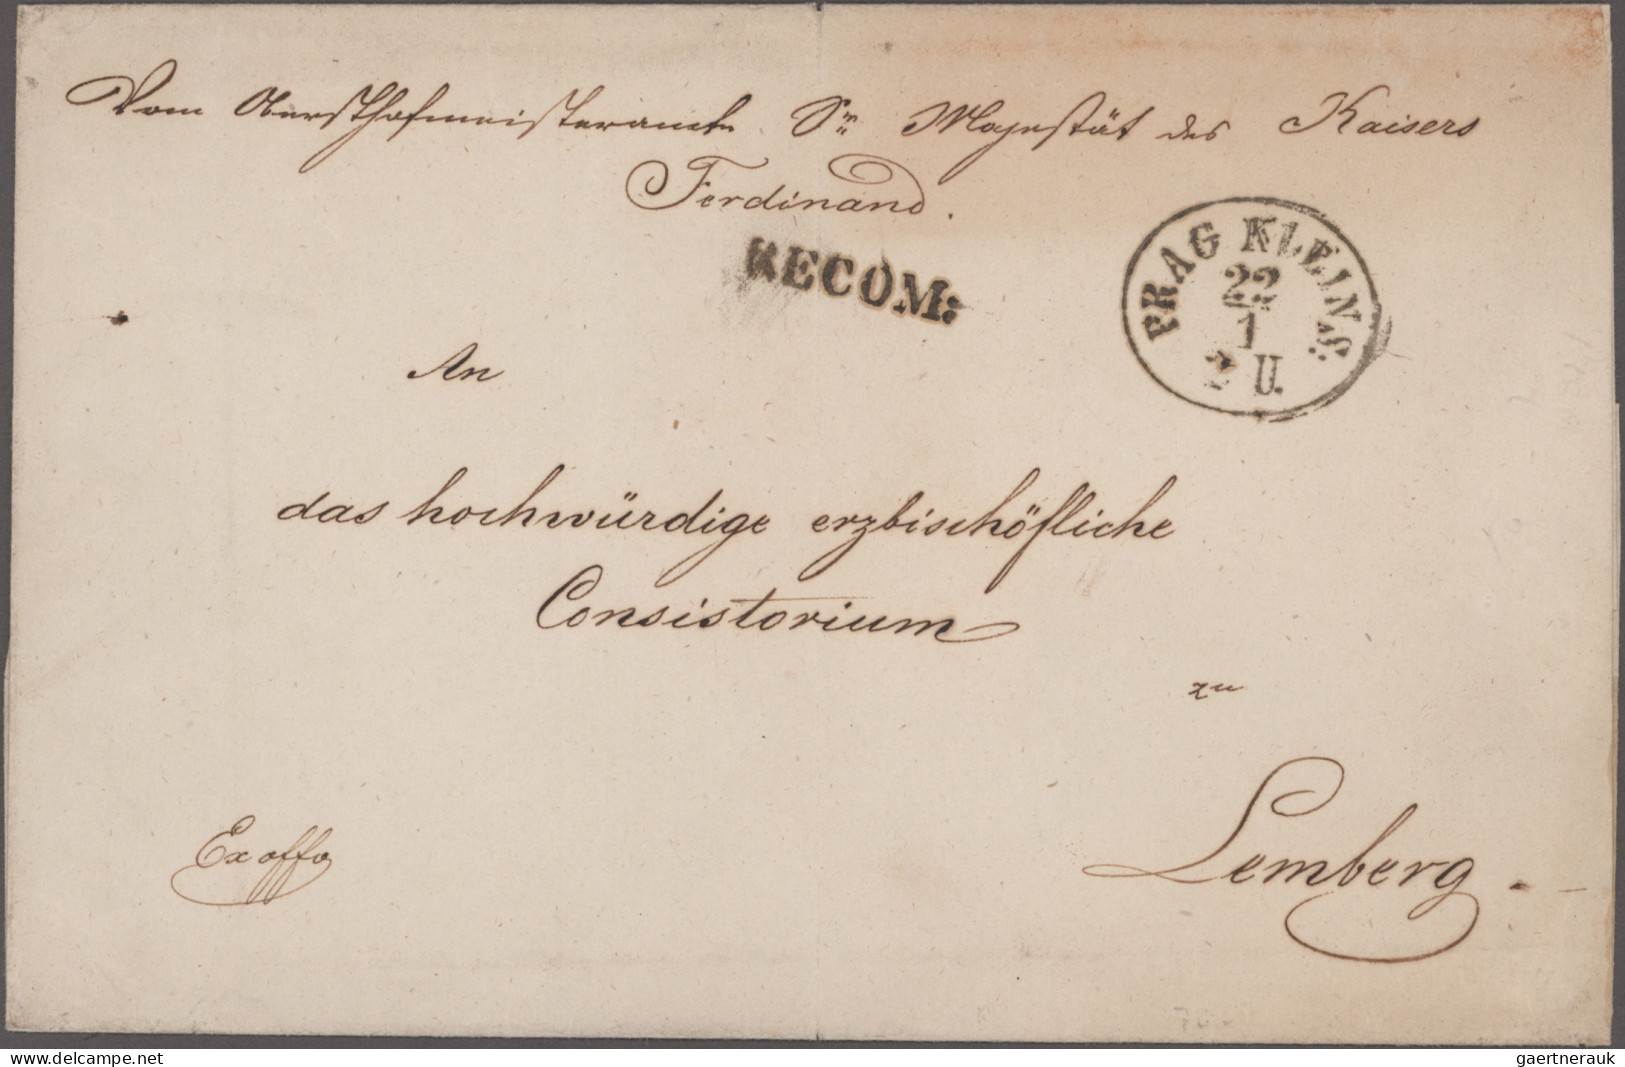 Vom Obersthofmeisteramte Sr. Majestät des Kaisers
Ferdinand.
RECOM:
PRAG KLEINS:
22
1
2 U.
An
das hochwürdige erzbischöfliche
Consistorium
zu
Lemberg.
Ex offo
www.delcampe.net
gaertnerauk